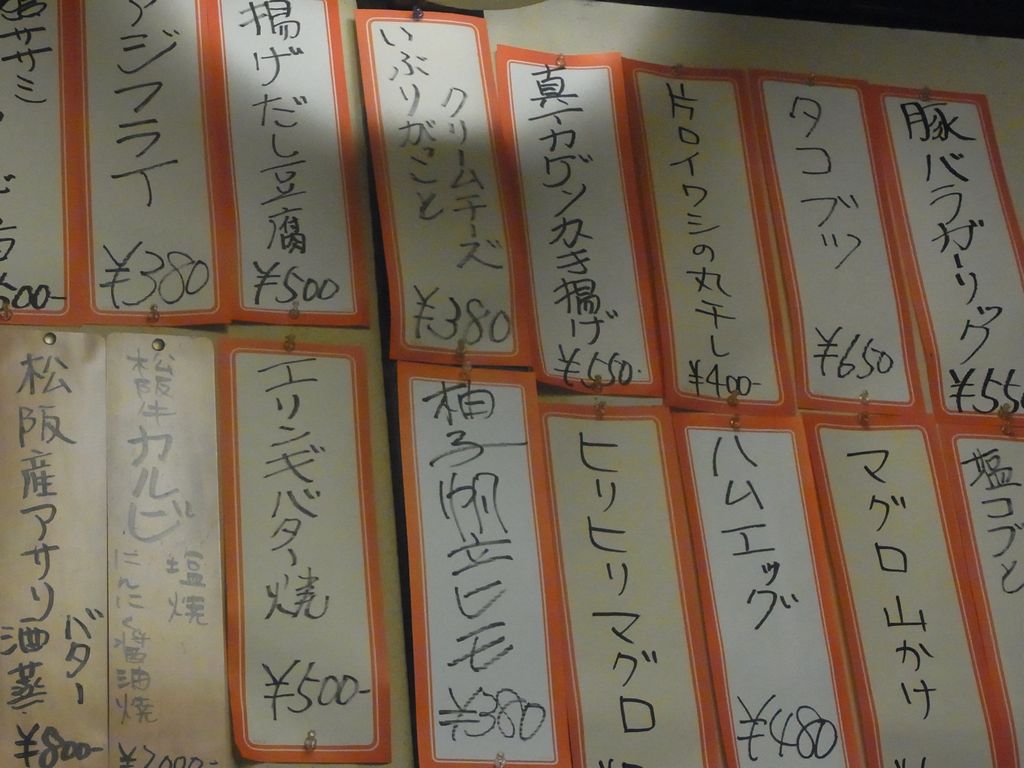 豚バラガーリック
¥55
タコブツ
¥650
片口イワシの丸干し
¥400-
¥550-
いぶりがっこと
クリームチーズ
¥380
揚げだし豆腐
¥500
アジフライ
¥380
ササミ
500-
塩コブと
マグロ山かけ
ハムエッグ
¥480
ヒリヒリマグロ
柚子明立ヒモ
¥380
エリンギバター焼
¥500-
松阪牛カルビ
塩焼
にんにく醤油焼
¥2000-
松阪産アサリ
バター
酒蒸
¥800-